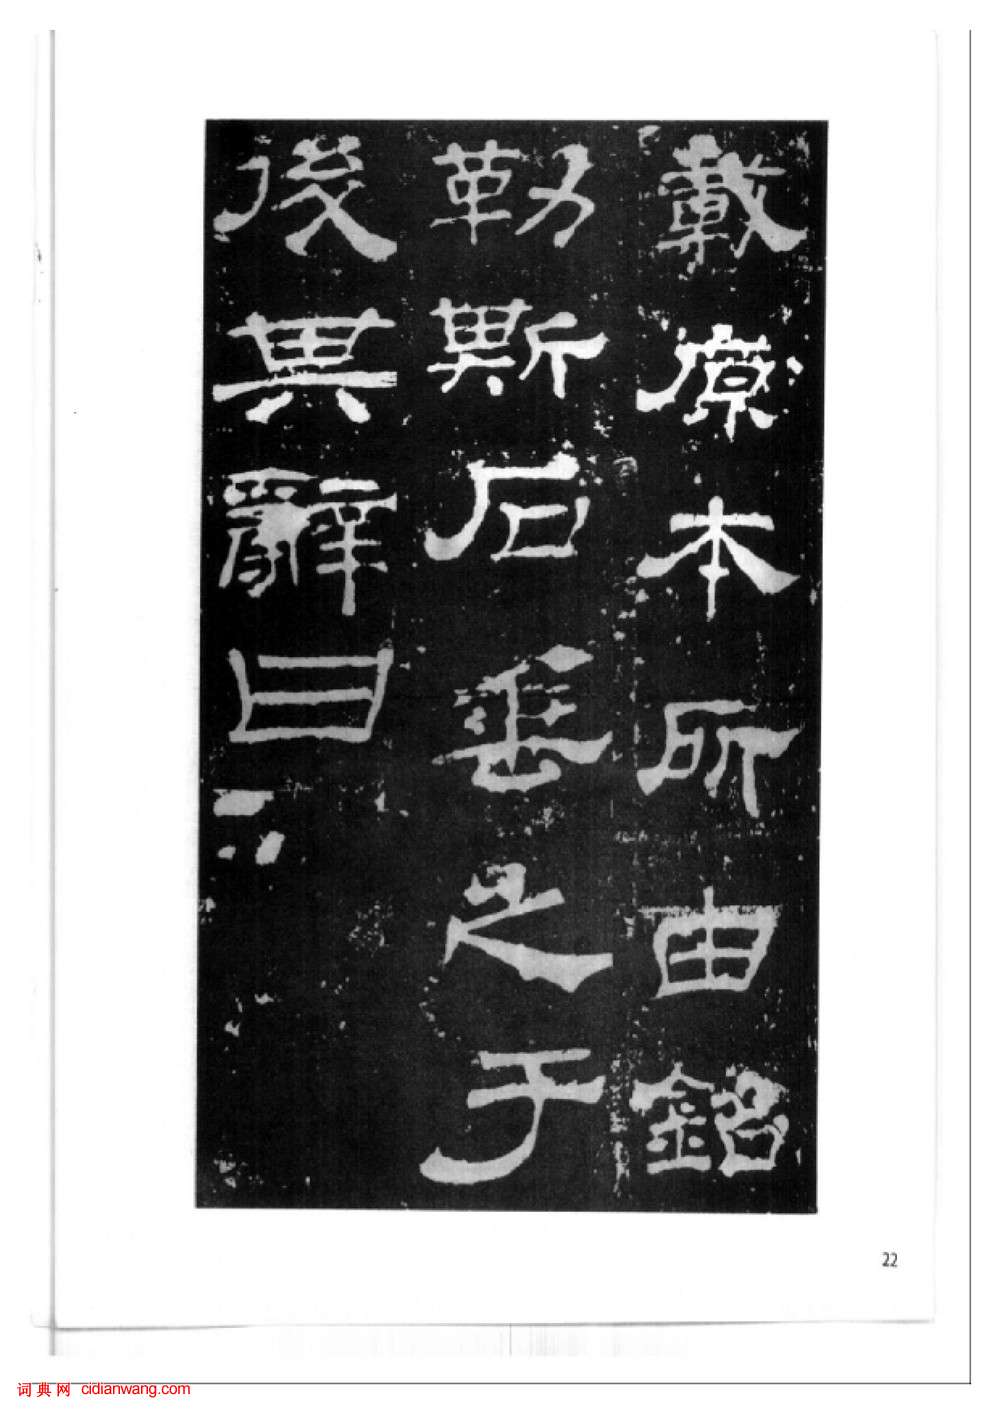 載原本所由銘
勒斯石垂之于
後其辭曰
22
词典网 cidianwang.com